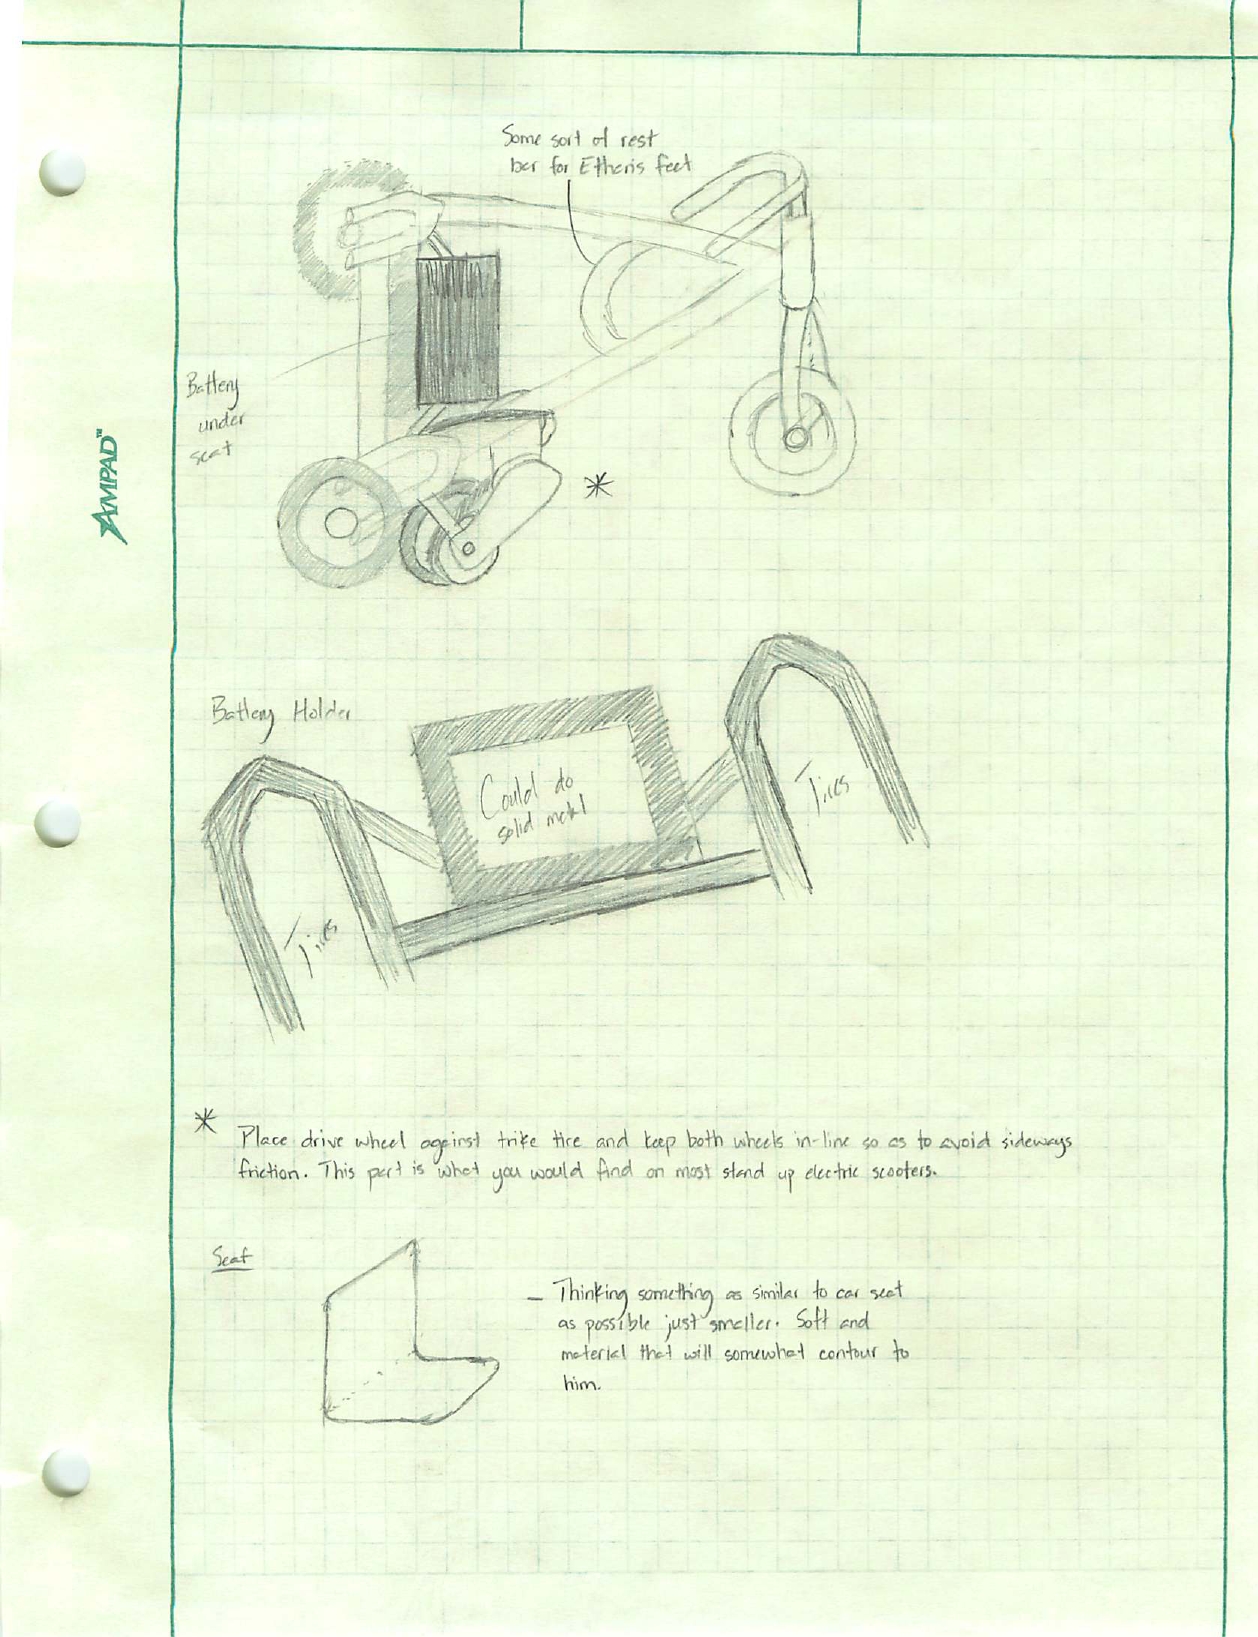 Some sort of rest
bar for Ethan's feet
Battery
under
seat
AMPAD™
Battery Holder
Could do
solid metal
Tires
Tires
* Place drive wheel against trike tire and keep both wheels in-line so as to avoid sideways
friction. This part is what you would find on most stand up electric scooters.
Seat
– Thinking something as similar to car seat
as possible just smaller. Soft and
material that will somewhat contour to
him.